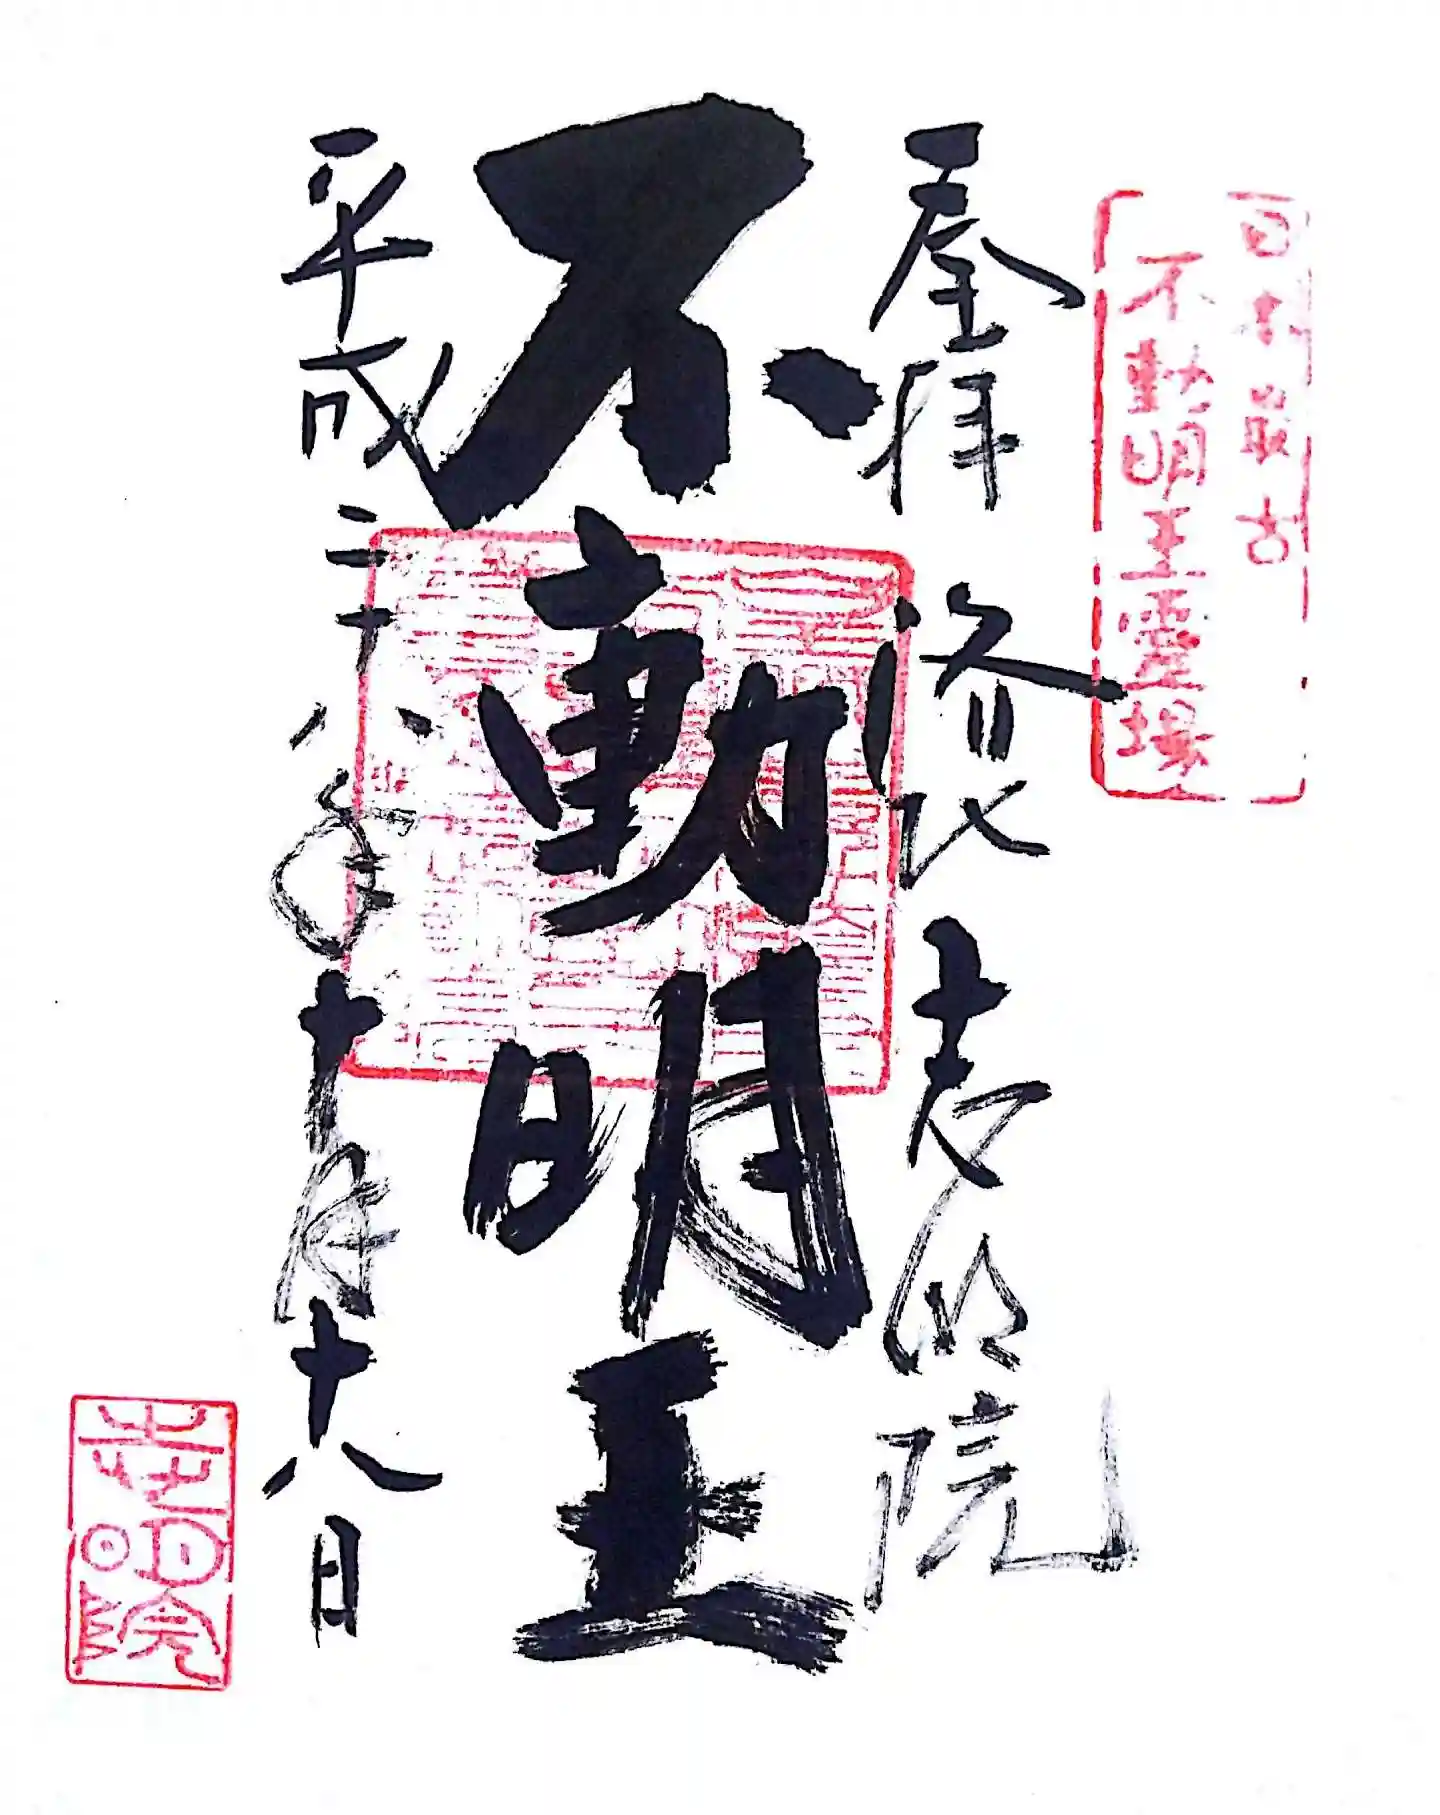 日本最古
不動明王霊場
奉拝 洛北 志明院
不動明王
平成二十八年十月十八日
志明院